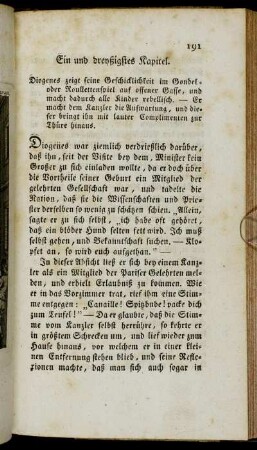 191
Ein und dreyßigstes Kapitel.
Diogenes zeigt seine Geschicklichkeit im Gondel-
oder Roullettenspiel auf offener Gasse, und
macht dadurch alle Kinder rebellisch. — Er
macht dem Kanzler die Aufwartung, und die-
ser bringt ihn mit lauter Complimenten zur
Thüre hinaus.
Diogenes war ziemlich verdrießlich darüber,
daß ihn, seit der Visite bey dem Minister kein
Großer zu sich einladen wollte, da er doch über
die Vortheile seiner Geburt ein Mitglied der
gelehrten Gesellschaft war, und tadelte die
Nation, daß sie die Wissenschaften und Prie-
ster derselben so wenig zu schätzen schien. „Allein,
sagte er zu sich selbst, „ich habe oft gehöret,
daß ein blöder Hund selten fett wird. Ich muß
selbst gehen, und Bekantschaft suchen, — Klo-
pfet an, so wird euch aufgethan." —
In dieser Absicht ließ er sich bey einem Kanz-
ler als ein Mitglied der Pariser Gelehrten mel-
den, und erhielt Erlaubniß zu kommen. Wie
er in das Vorzimmer trat, rief ihm eine Stim-
me entgegen: „Canaille! Spizbube! packe dich
zum Teufel!" — Da er glaubte, daß die Stim-
me vom Kanzler selbst herrühre, so kehrte er
in größtem Schrecken um, und lief wieder zum
Hause hinaus, vor welchem er in einer klei-
nen Entfernung stehen blieb, und seine Refle-
xionen machte, daß man sich auch sogar in